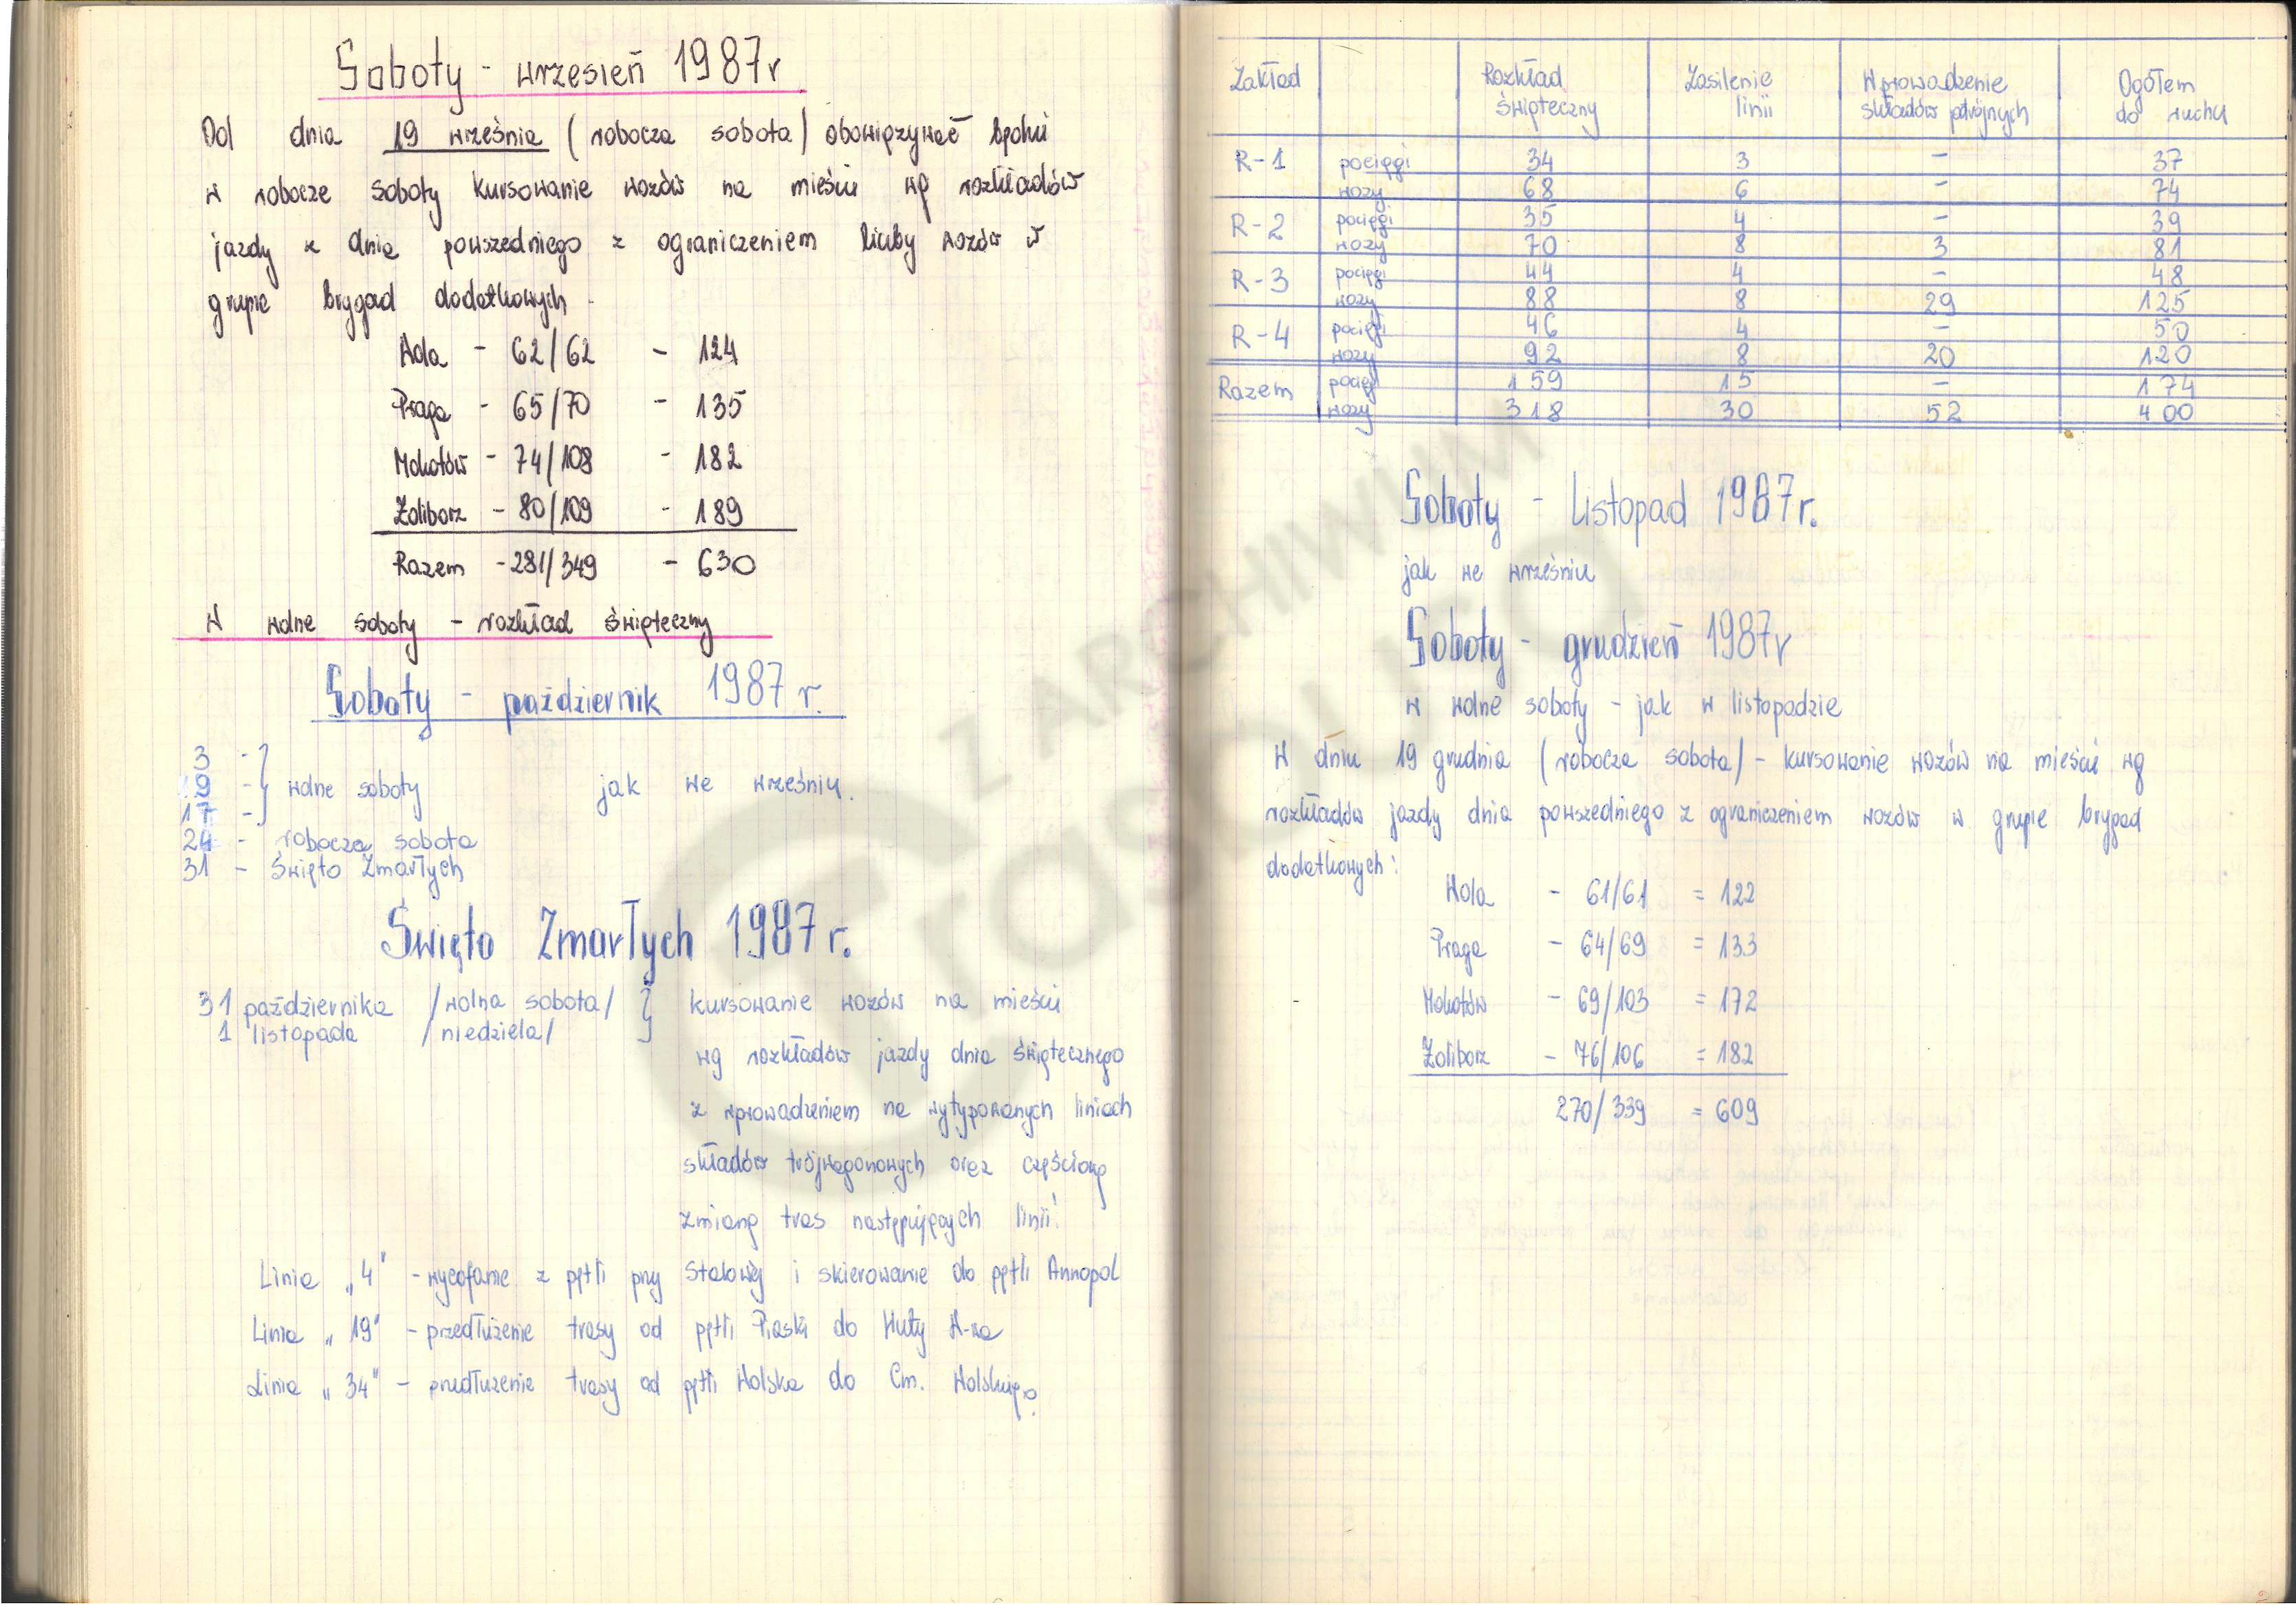 Soboty - wrzesień 1987r
Od dnia 19 września (robocza sobota) obowiązywać będzie
w robocze soboty kursowanie wozów na mieście wg rozkładów
jazdy z dnia powszedniego z ograniczeniem liczby wozów w
grupie brygad dodatkowych
Wola - 62/62 - 124
Praga - 65/70 - 135
Mokotów - 74/108 - 182
Żoliborz - 80/109 - 189
Razem - 281/349 - 630
W wolne soboty - rozkład świąteczny
Soboty - październik 1987 r.
3 -
19 - wolne soboty jak we wrześniu.
17 -
24 - robocza sobota
31 - Święto Zmarłych
Święto Zmarłych 1987 r.
31 października /wolna sobota/ kursowanie wozów na mieście
1 listopada /niedziela/
wg rozkładów jazdy dnia świątecznego
z wprowadzeniem na wytypowanych liniach
składów trójwagonowych oraz częściową
zmianą tras następujących linii:
Linia „4" - wycofanie z pętli przy Stalowej i skierowanie do pętli Annopol
Linia „19" - przedłużenie trasy od pętli Piaski do Huty W-wa
Linia „34" - przedłużenie trasy od pętli Wolska do Cm. Wolskiego
Zakład Rozkład świąteczny Zasilenie linii Wprowadzenie składów potrójnych Ogółem do ruchu
R-1 pociągi 34 3 - 37
wozy 68 6 - 74
R-2 pociągi 35 4 - 39
wozy 70 8 3 81
R-3 pociągi 44 4 - 48
wozy 88 8 29 125
R-4 pociągi 46 4 - 50
wozy 92 8 20 120
Razem pociągi 159 15 - 174
wozy 318 30 52 400
Soboty - listopad 1987r.
jak we wrześniu
Soboty - grudzień 1987r
w wolne soboty - jak w listopadzie
W dniu 19 grudnia (robocza sobota) - kursowanie wozów na mieście wg
rozkładów jazdy dnia powszedniego z ograniczeniem wozów w grupie brygad
dodatkowych:
Wola - 61/61 = 122
Praga - 64/69 = 133
Mokotów - 69/103 = 172
Żoliborz - 76/106 = 182
270/339 = 609
Z ARCHIWUM